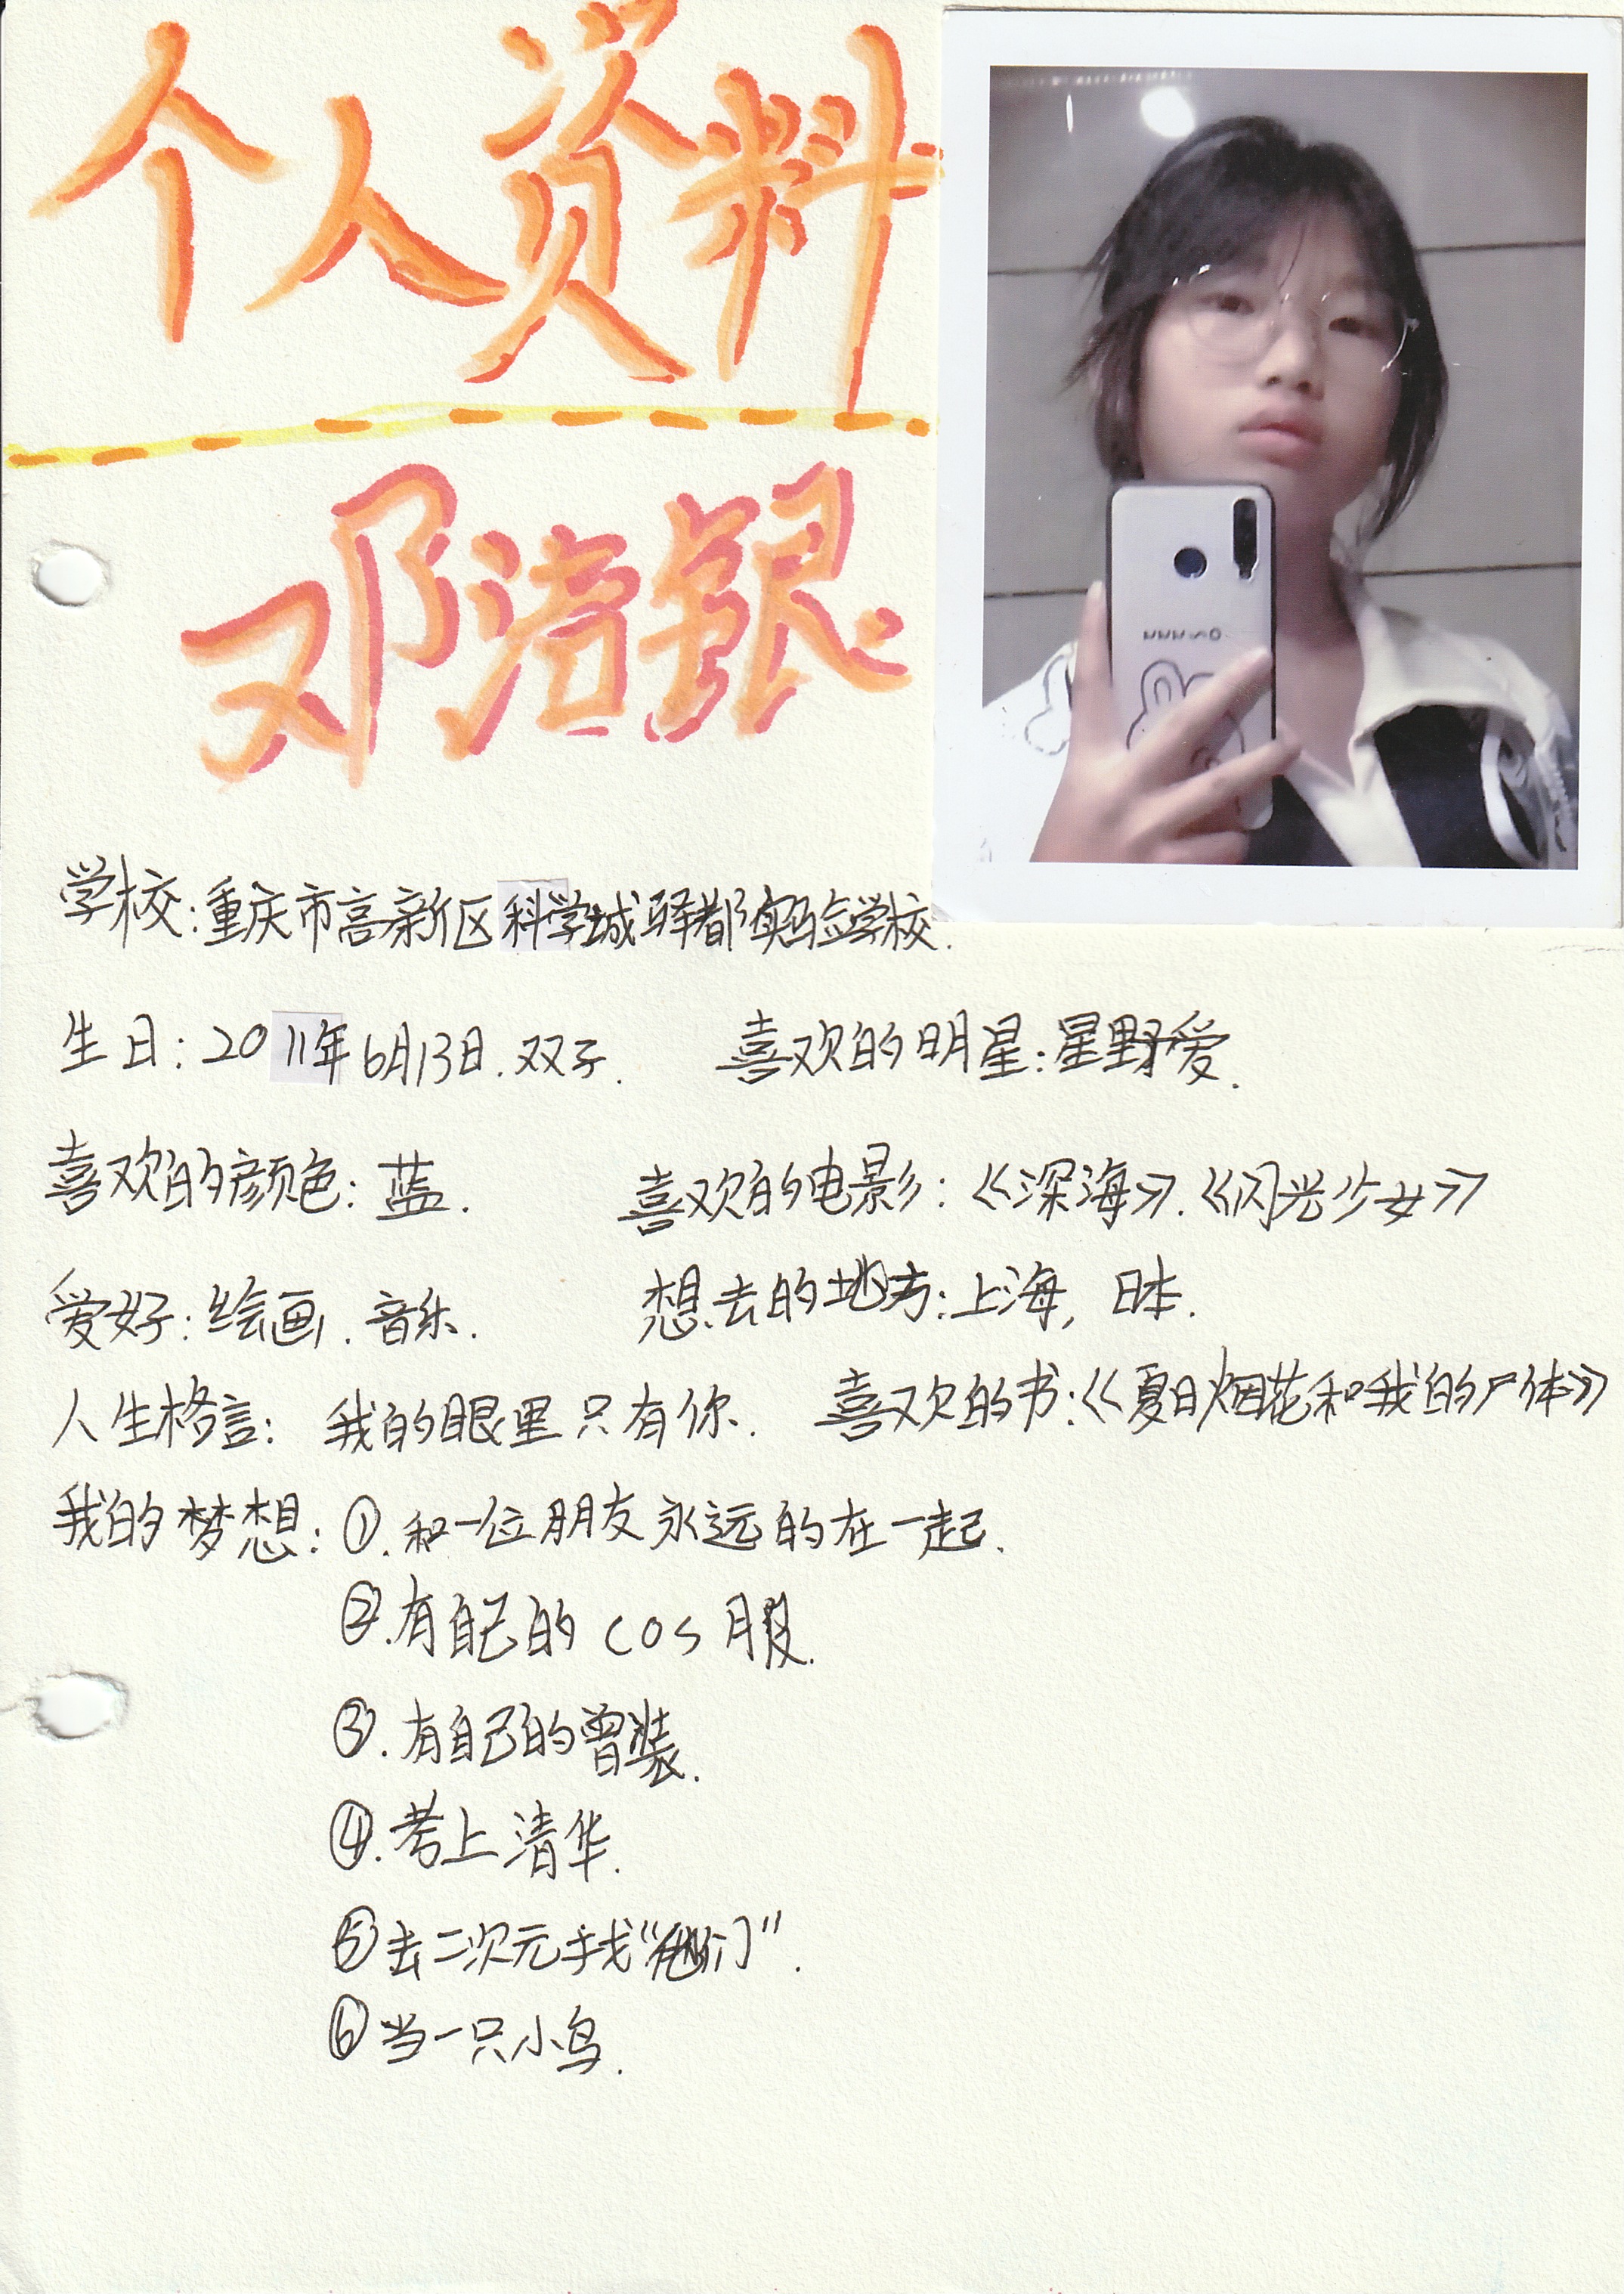 个人资料
邓涪银
学校:重庆市高新区科学城驿都实验学校.
生日:2011年6月13日.双子. 喜欢的明星:星野爱.
喜欢的颜色:蓝. 喜欢的电影:《深海》.《闪光少女》
爱好:绘画.音乐. 想去的地方:上海,日本.
人生格言:我的眼里只有你. 喜欢的书:《夏日烟花和我的尸体》
我的梦想:①.和一位朋友永远的在一起.
②.有自己的cos服.
③.有自己的曾装.
④.考上清华.
⑤去二次元找“他们”.
⑥当一只小鸟.